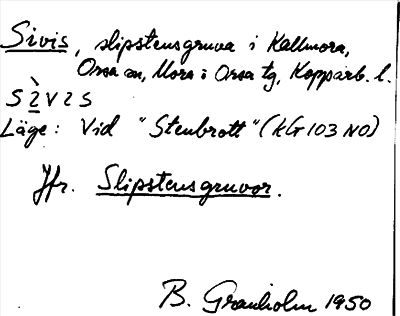 Sivis, slipstensgruva i Kallmora,
Orsa sn, Mora o Orsa tg, Kopparb. l.
Läge: Vid "Stenbrott" (kG 103 NO)
Jfr. Slipstensgruvor.
B. Granholm 1950